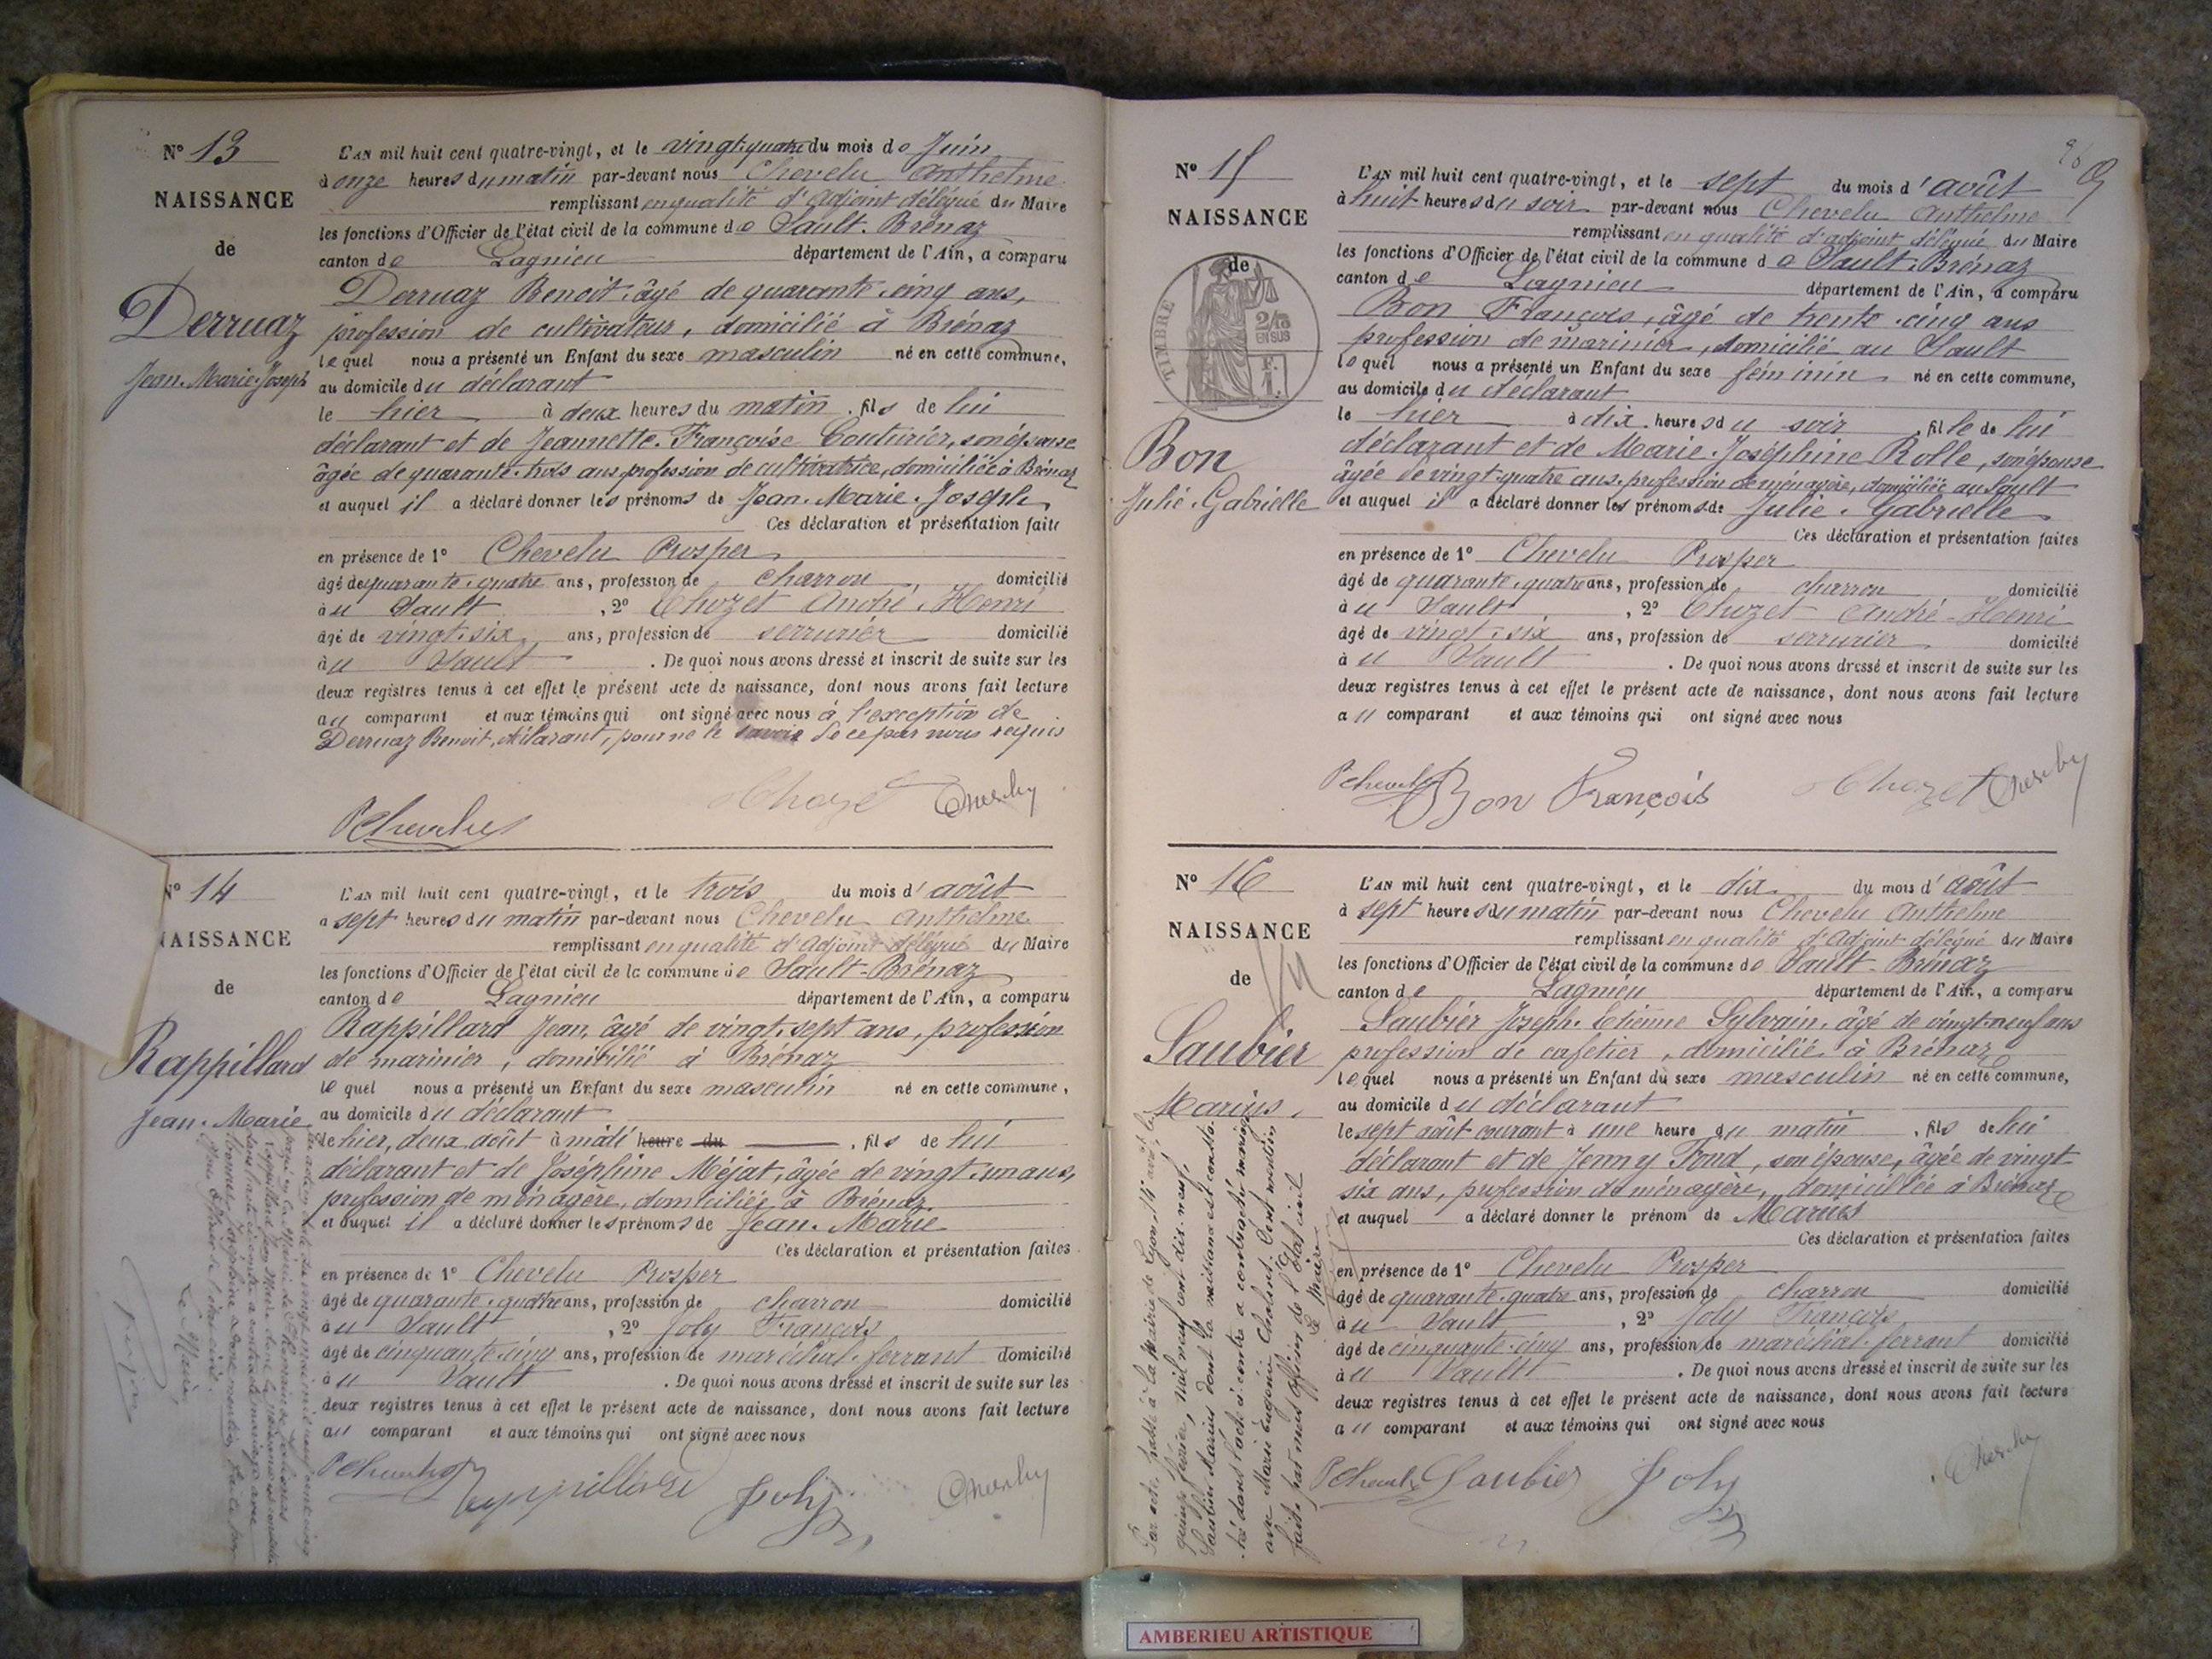 N° 13
NAISSANCE
de
Derruaz
Jean-Marie-Joseph
L'AN mil huit cent quatre-vingt, et le vingt-quatre du mois de Juin
à onze heures du matin par-devant nous Chevelu Anthelme
remplissant en qualité d'Adjoint délégué du Maire
les fonctions d'Officier de l'état civil de la commune de Sault-Brénaz
canton de Lagnieu département de l'Ain, a comparu
Derruaz Benoit, âgé de quarante-cinq ans,
profession de cultivateur, domicilié à Brénaz
lequel nous a présenté un Enfant du sexe masculin né en cette commune,
au domicile du déclarant
le hier à deux heures du matin, fils de lui
déclarant et de Jeannette-Françoise Couturier, son épouse
âgée de quarante-trois ans, profession de cultivatrice, domiciliée à Brénaz
et auquel il a déclaré donner les prénoms de Jean-Marie-Joseph
Ces déclaration et présentation faites
en présence de 1° Chevelu Prosper
âgé de quarante-quatre ans, profession de charron domicilié
au Sault, 2° Chozet André-Henri
âgé de vingt-six ans, profession de serrurier domicilié
au Sault. De quoi nous avons dressé et inscrit de suite sur les
deux registres tenus à cet effet le présent acte de naissance, dont nous avons fait lecture
au comparant et aux témoins qui ont signé avec nous à l'exception de
Derruaz Benoit, déclarant, pour ne le savoir de ce par nous requis
Chozet
PChevelu
N° 14
NAISSANCE
de
Rappillard
Jean-Marie
L'AN mil huit cent quatre-vingt, et le trois du mois d'août
à sept heures du matin par-devant nous Chevelu Anthelme
remplissant en qualité d'Adjoint délégué du Maire
les fonctions d'Officier de l'état civil de la commune de Sault-Brénaz
canton de Lagnieu département de l'Ain, a comparu
Rappillard Jean, âgé de vingt-sept ans, profession
de marinier, domicilié à Brénaz
lequel nous a présenté un Enfant du sexe masculin né en cette commune,
au domicile du déclarant
le hier, deux août à midi heure du, fils de lui
déclarant et de Joséphine Méjat, âgée de vingt-un ans,
profession de ménagère, domiciliée à Brénaz
et auquel il a déclaré donner les prénoms de Jean-Marie
Ces déclaration et présentation faites
en présence de 1° Chevelu Prosper
âgé de quarante-quatre ans, profession de charron domicilié
au Sault, 2° Joly François
âgé de cinquante-cinq ans, profession de maréchal-ferrant domicilié
au Sault. De quoi nous avons dressé et inscrit de suite sur les
deux registres tenus à cet effet le présent acte de naissance, dont nous avons fait lecture
au comparant et aux témoins qui ont signé avec nous
PChevelu Rappillard Joly
Le Maire,
N° 15
NAISSANCE
de
TIMBRE
2/10
EN SUS
Bon
Julie-Gabrielle
L'AN mil huit cent quatre-vingt, et le sept du mois d'août
à huit heures du soir par-devant nous Chevelu Anthelme
remplissant en qualité d'adjoint délégué du Maire
les fonctions d'Officier de l'état civil de la commune de Sault-Brénaz
canton de Lagnieu département de l'Ain, a comparu
Bon François, âgé de trente-cinq ans
profession de marinier, domicilié au Sault
lequel nous a présenté un Enfant du sexe féminin né en cette commune,
au domicile du déclarant
le hier à dix heures du soir, fille de lui
déclarant et de Marie-Joséphine Rolle, son épouse
âgée de vingt-quatre ans, profession de ménagère, domiciliée au Sault
et auquel il a déclaré donner les prénoms de Julie-Gabrielle
Ces déclaration et présentation faites
en présence de 1° Chevelu Prosper
âgé de quarante-quatre ans, profession de charron domicilié
au Sault, 2° Chozet André-Henri
âgé de vingt-six ans, profession de serrurier domicilié
au Sault. De quoi nous avons dressé et inscrit de suite sur les
deux registres tenus à cet effet le présent acte de naissance, dont nous avons fait lecture
au comparant et aux témoins qui ont signé avec nous
PChevelu Bon François Chozet
N° 16
NAISSANCE
de
Saubier
Marius
L'AN mil huit cent quatre-vingt, et le dix du mois d'août
à sept heures du matin par-devant nous Chevelu Anthelme
remplissant en qualité d'Adjoint délégué du Maire
les fonctions d'Officier de l'état civil de la commune de Sault-Brénaz
canton de Lagnieu département de l'Ain, a comparu
Saubier Joseph-Etienne Sylvain, âgé de vingt-neuf ans
profession de cafetier, domicilié à Brénaz
lequel nous a présenté un Enfant du sexe masculin né en cette commune,
au domicile du déclarant
le sept août courant à une heure du matin, fils de lui
déclarant et de Jenny Fond, son épouse, âgée de vingt-
six ans, profession de ménagère, domiciliée à Brénaz
et auquel a déclaré donner le prénom de Marius
Ces déclaration et présentation faites
en présence de 1° Chevelu Prosper
âgé de quarante-quatre ans, profession de charron domicilié
au Sault, 2° Joly François
âgé de cinquante-cinq ans, profession de maréchal-ferrant domicilié
au Sault. De quoi nous avons dressé et inscrit de suite sur les
deux registres tenus à cet effet le présent acte de naissance, dont nous avons fait lecture
au comparant et aux témoins qui ont signé avec nous
PChevelu Saubier Joly
Par acte passé à la Mairie de Lyon
quinze février mil neuf cent dix-neuf,
Saubier Marius dont la naissance est consta-
tée dans l'acte ci-contre a contracté mariage
avec Marie Eugénie Dont mention
faite par nous officier de l'Etat civil
Le Maire
AMBERIEU ARTISTIQUE